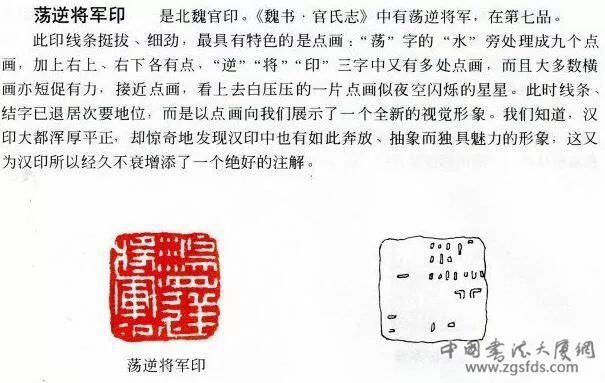 荡逆将军印 是北魏官印。《魏书·官氏志》中有荡逆将军，在第七品。
此印线条挺拔、细劲，最具有特色的是点画：“荡”字的“水”旁处理成九个点
画，加上右上、右下各有点，“逆”“将”“印”三字中又有多处点画，而且大多数横
画亦短促有力，接近点画，看上去白压压的一片点画似夜空闪烁的星星。此时线条、
结字已退居次要地位，而是以点画向我们展示了一个全新的视觉形象。我们知道，汉
印大都浑厚平正，却惊奇地发现汉印中也有如此奔放、抽象而独具魅力的形象，这又
为汉印所以经久不衰增添了一个绝好的注解。
荡逆将军印
中国书法大厦网
www.zgsfds.com